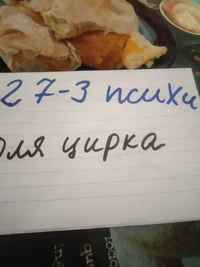 27-3 психи
для цирка